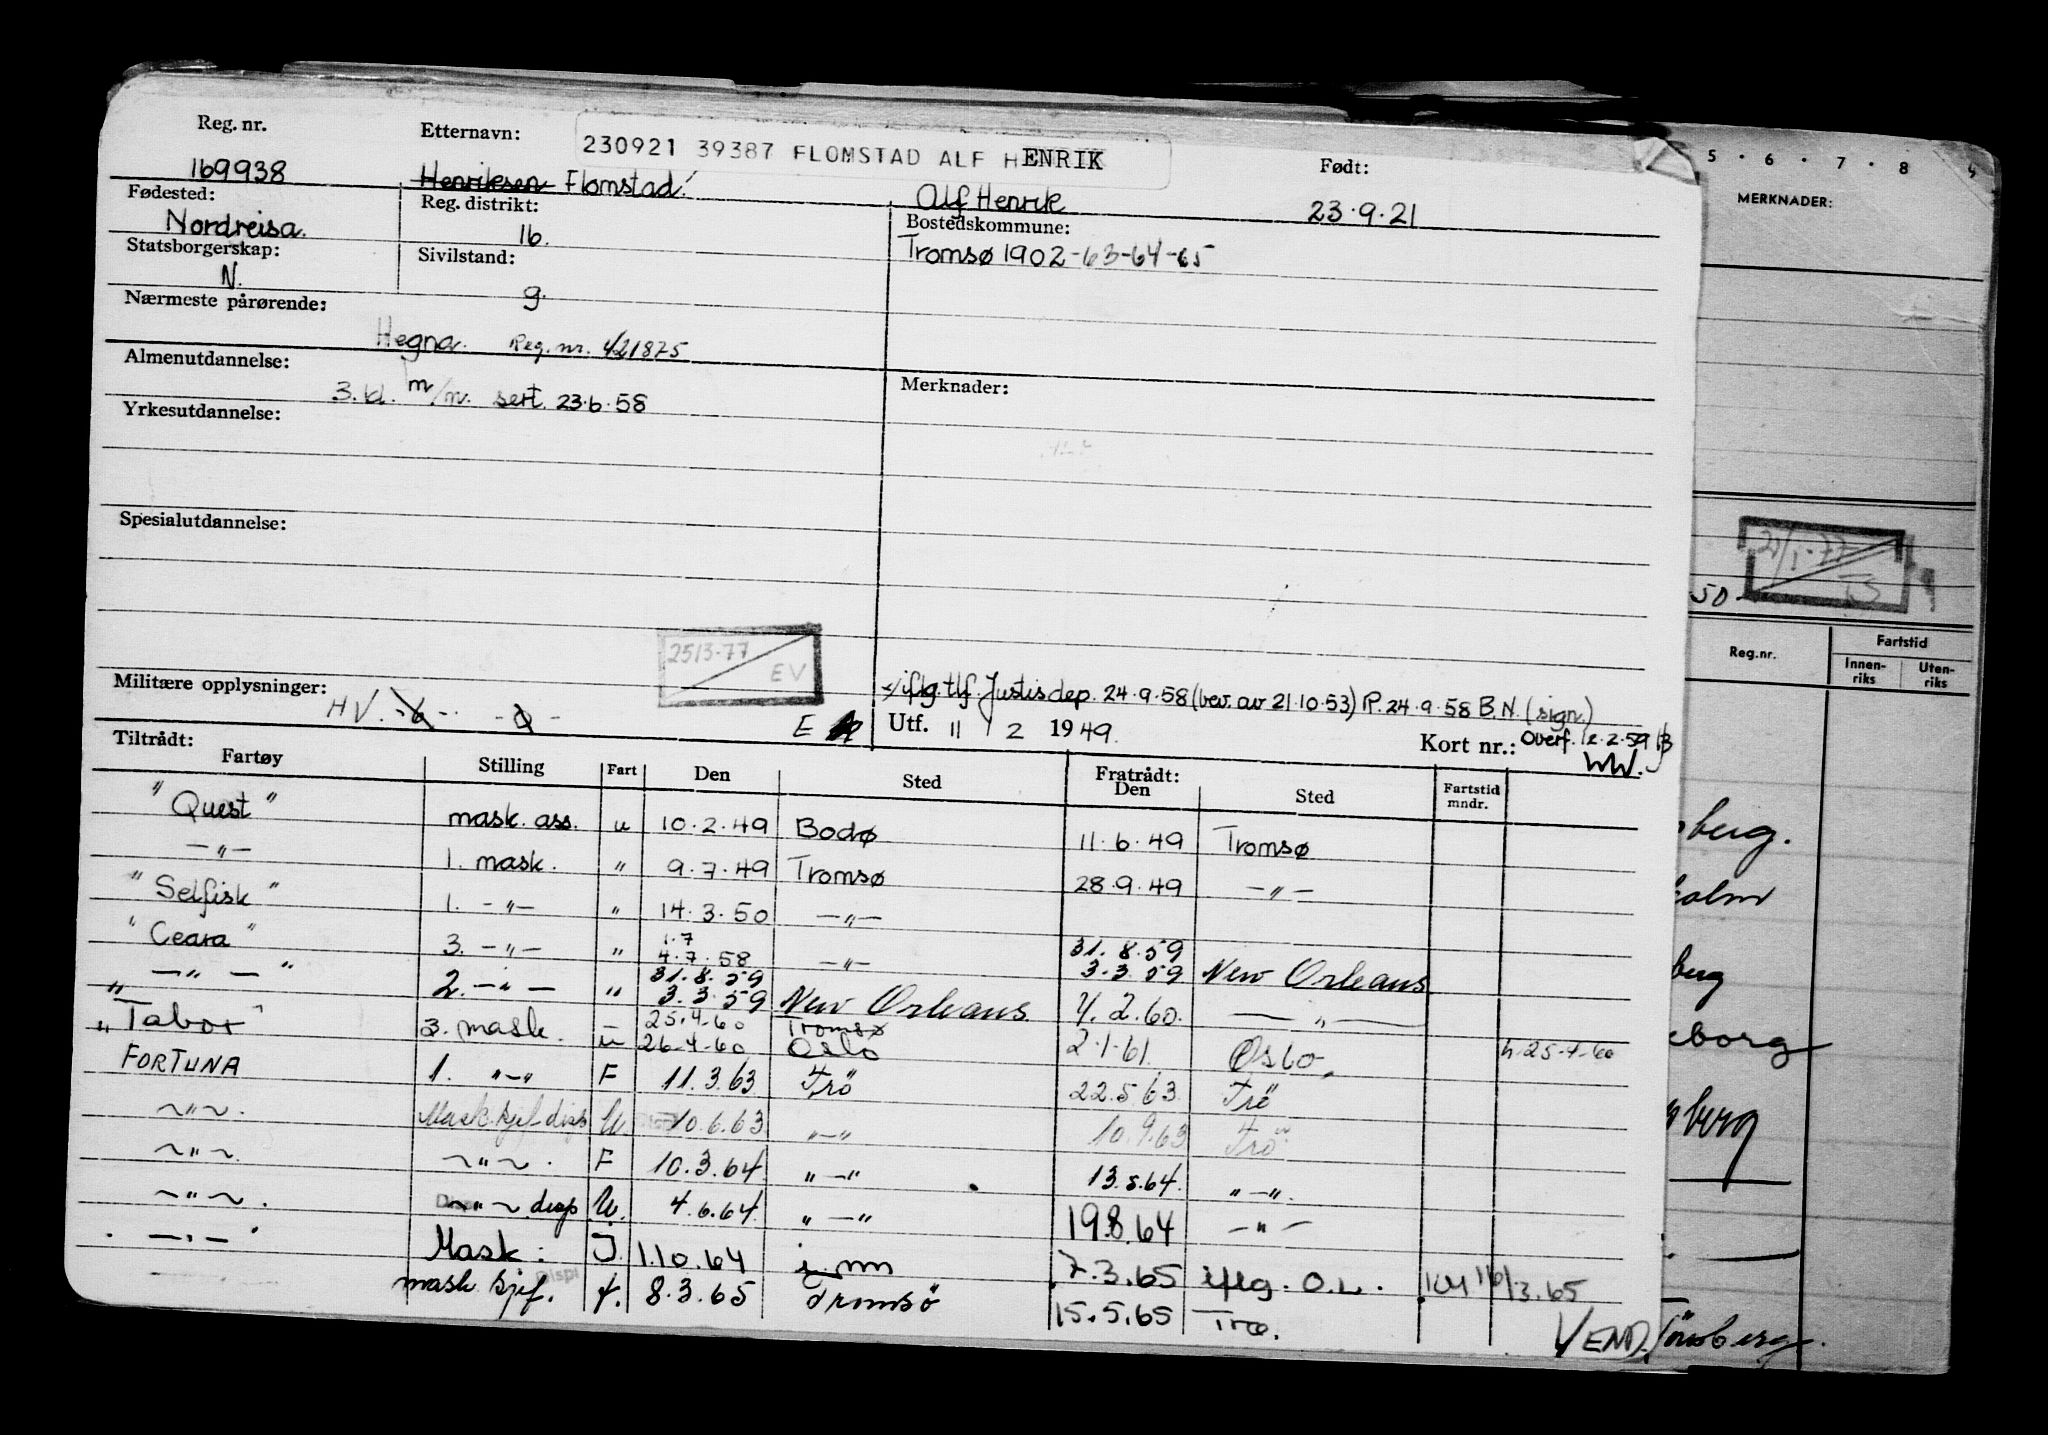 Reg. nr. Etternavn: 230921 39387 FLOMSTAD ALF HENRIK Født:
169938 Henriksen Flomstad Alf Henrik 23.9.21
Fødested: Reg. distrikt: Bostedskommune:
Nordreisa. 16. Tromsø 1902-63-64-65
Statsborgerskap: Sivilstand:
N. g.
Nærmeste pårørende:
Hegna. Reg. nr. 421875
Almenutdannelse: Merknader:
3. kl. m/m. sert. 23.6.58
Yrkesutdannelse:
Spesialutdannelse:
25/3-77
EV
Militære opplysninger: HV.
iflg. tlf. Justisdep. 24.9.58 (bev. av 21.10.53) R. 24.9.58 B.N. (sign.)
E Utf. 11 / 2 1949. Kort nr.: Overf. 12.2.59
WW.
Tiltrådt: Fratrådt:
Fartøy Stilling Fart Den Sted Den Sted Fartstid mndr.
"Quest" mask. ass. u 10.2.49 Bodø 11.6.49 Tromsø
—"— 1. mask. " 9.7.49 Tromsø 28.9.49 —"—
"Selfisk" 1. —"— " 14.3.50 —"—
"Ceara" 3. —"— " 1.7 4.7.58 —"— 31.8.59 3.3.59 New Orleans
—"— 2. —"— " 31.8.59 3.3.59 New Orleans 4.2.60. —"—
"Tabor" 3. mask. u 25.4.60 26.4.60 Tromsø Oslo 2.1.61. Oslo. h. 25-7-60
FORTUNA 1. "—" F 11.3.63 Trö 22.5.63 Trö
~"~. Mask. sjef disp U. 10.6.63 "—" 10.9.63 Trö
~"~. ~"~. F 10.3.64 "—" 13.5.64. "—".
~"~. ~"~ disp U. 4.6.64. "—" 19.8.64 —"—
—"— Mask. J. 1.10.64 i. nn 7.3.65 iflg. O.L. /3.65
mask sjef. Disp f. 8.3.65 Tromsö 15.5.65 Trö.
VEND.
5 · 6 · 7 · 8
MERKNADER:
21/1-77
TS
50
Reg.nr. Fartstid
Innen- riks Uten- riks
berg.
holm
berg
eborg
berg
Tönsberg.